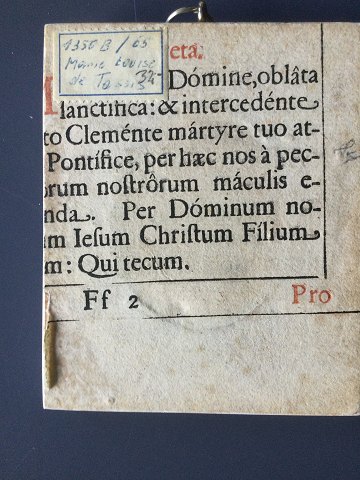 1350 B / 65
Marie Louise
de Tassis
325
eta:
M Dómine, oblâta
sanctifica: & intercedénte
to Cleménte mártyre tuo at-
Pontífice, per hæc nos à pec-
orum nostrôrum máculis e-
nda. Per Dóminum no-
um Iesum Christum Fílium
m: Qui tecum.
Ff 2
Pro